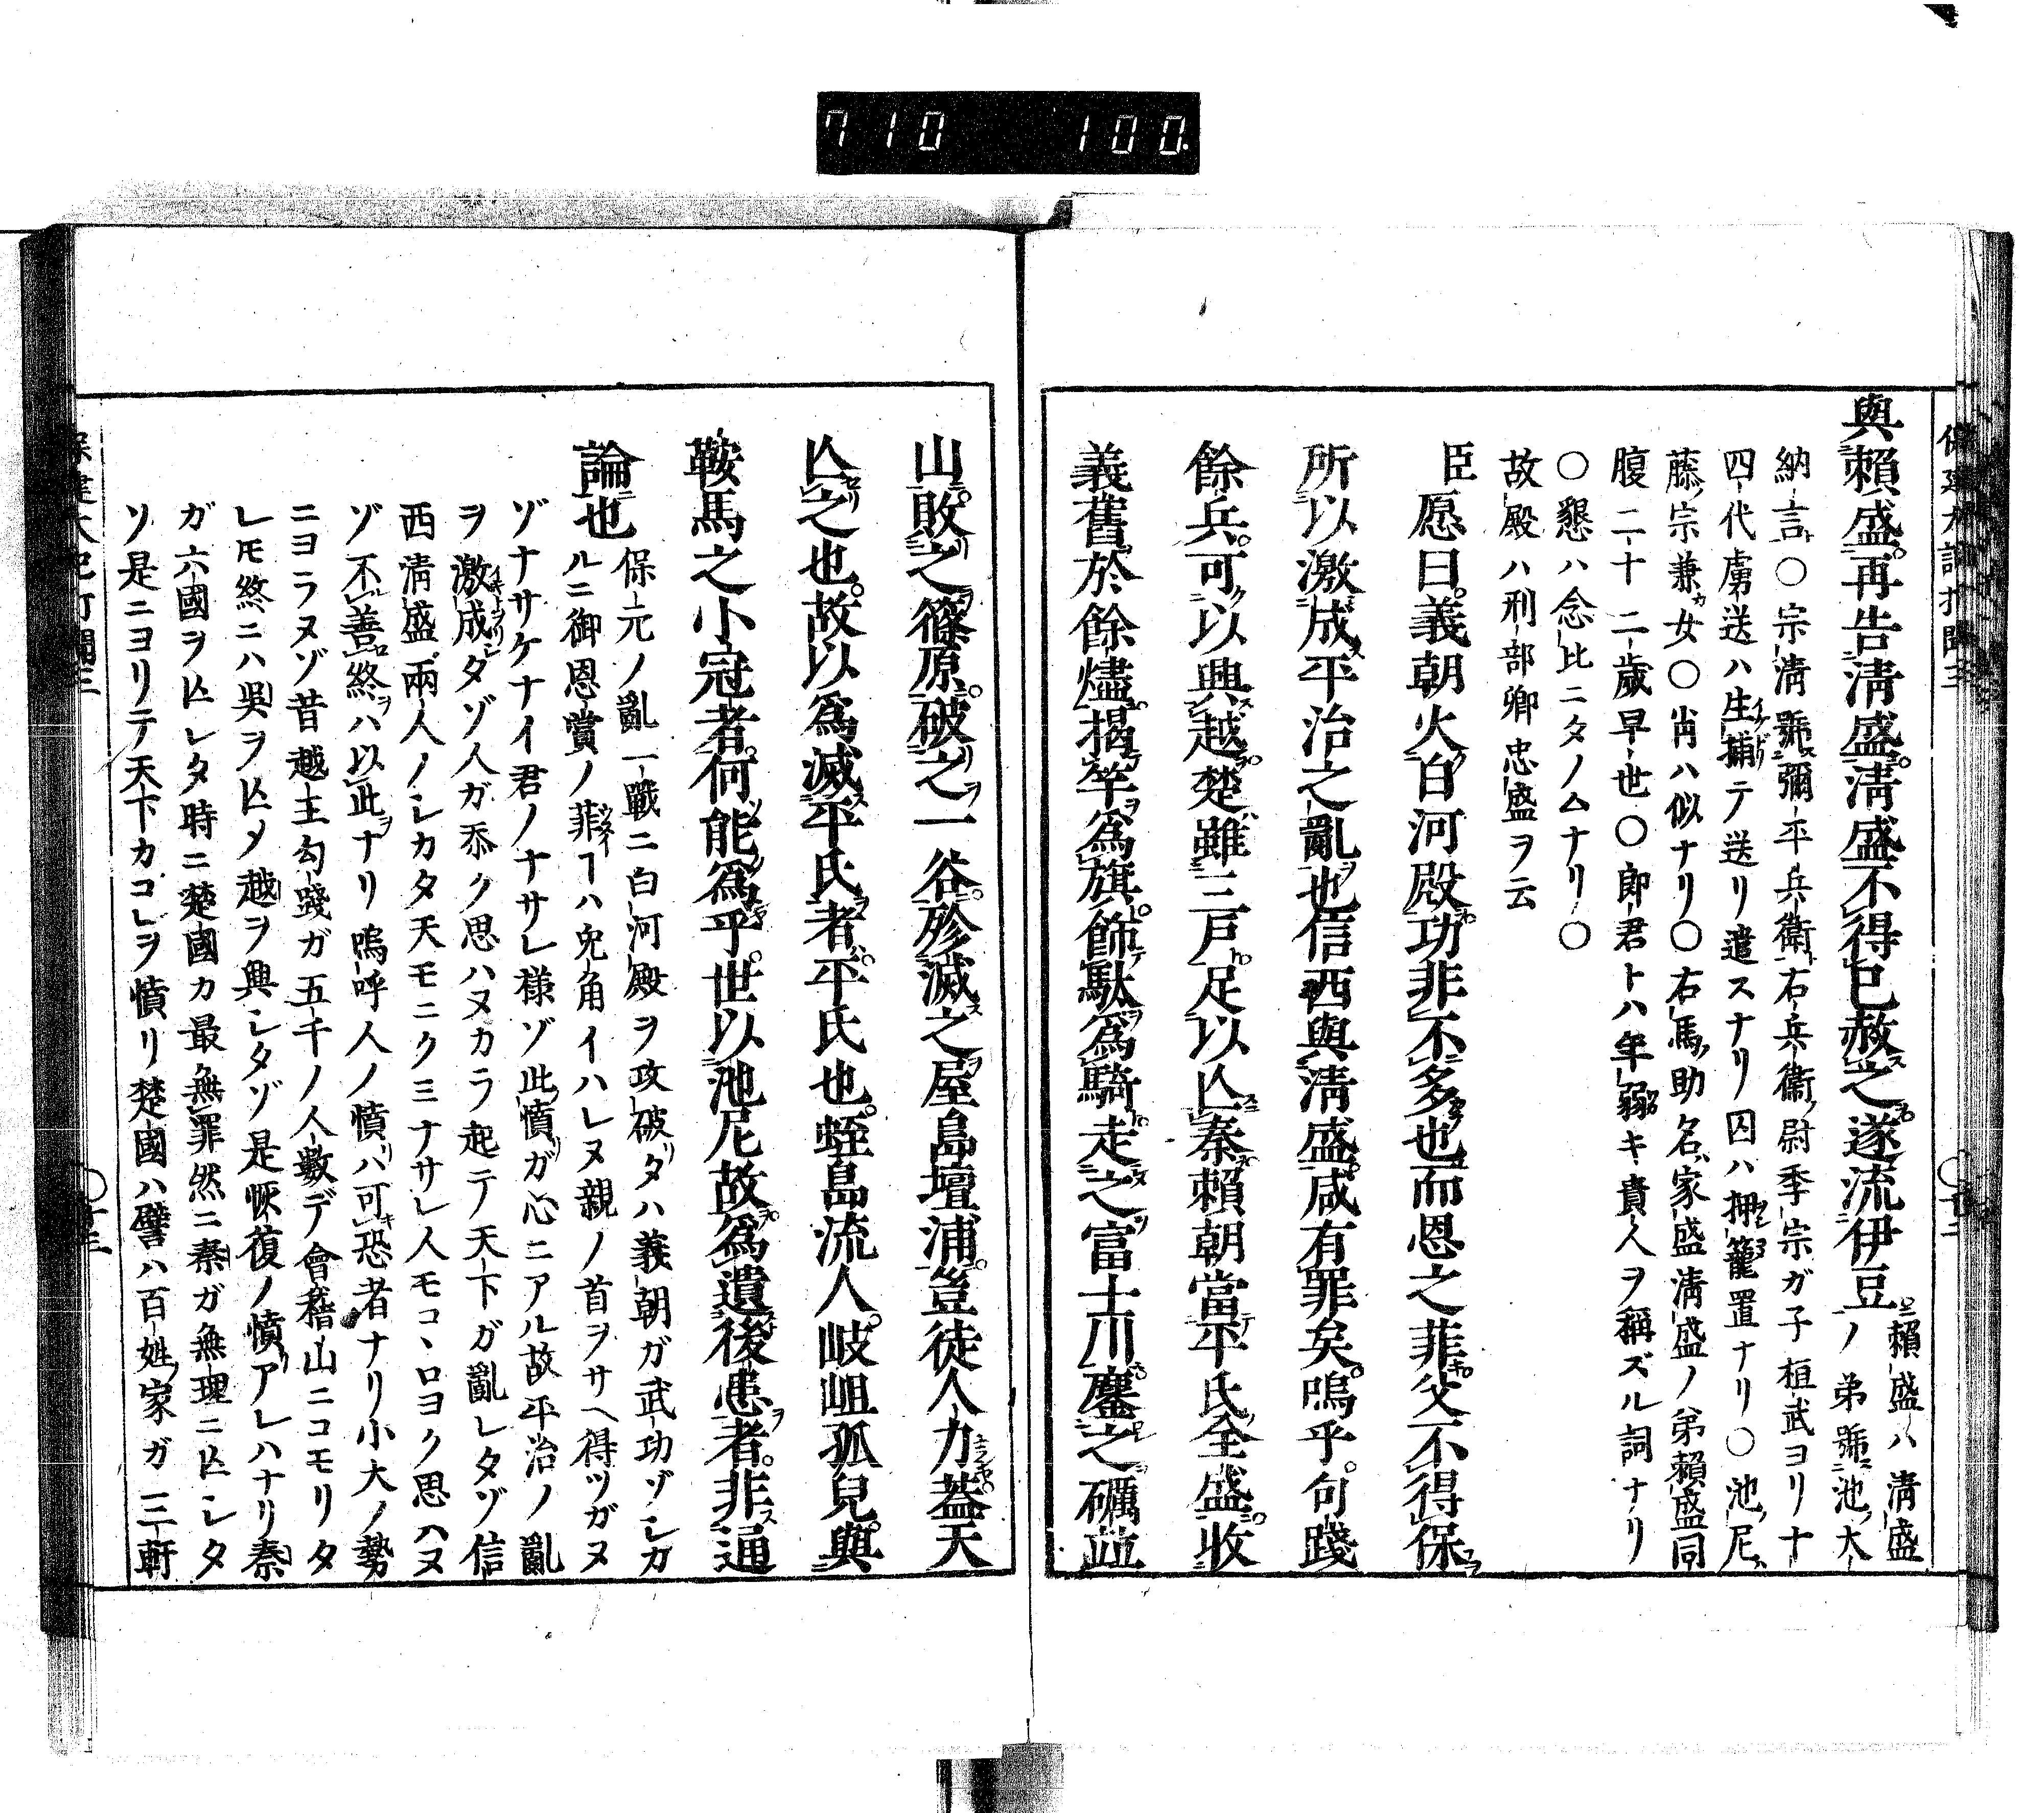 710 100.
與賴盛再告淸盛淸盛不得已赦之遂流伊豆
賴盛ハ淸盛
ノ弟號池大
納言〇宗淸號彌平兵衞右兵衞尉季宗ガ子桓武ヨリ十
四代虜送ハ生捕テ送リ遣スナリ囚ハ押籠置ナリ〇池ノ尼ハ
藤宗兼女〇肖ハ似ナリ〇右馬助名家盛淸盛ノ弟賴盛同
腹二十二歲早世〇郎君トハ年弱キ貴人ヲ稱ズル詞ナリ
〇懇ハ念比ニタノムナリ〇
故殿ハ刑部卿忠盛ヲ云
臣愿曰義朝火白河殿功非不多也而恩之菲父不得保
所以激成平治之亂也信西與淸盛咸有罪矣嗚乎句踐
餘兵可以興越楚雖三戸足以亾秦賴朝當平氏全盛收
義舊於餘燼揭竿爲旗飾駄爲騎走之富士川鏖之礪並
山敗之篠原破之一谷殄滅之屋島壇浦豈徒人力蓋天
亾之也故以爲滅平氏者平氏也蛭島流人岐岨孤兒與
鞍馬之小冠者何能爲乎世以池尼故爲遺後患者非通
論也
保元ノ亂一戰ニ白河殿ヲ攻破タハ義朝ガ武功ゾシカ
ルニ御恩賞ノ菲ヿハ兔角イハレヌ親ノ首ヲサヘ得ツガヌ
ゾナサケナイ君ノナサレ樣ゾ此憤ガ心ニアル故平治ノ亂
ヲ激成タゾ人ガ忝ク思ハヌカラ起テ天下ガ亂レタゾ信
西淸盛兩人ノシカタ天モニクミナサレ人モコヽロヨク思ハヌ
ゾ不善終ハ以此ナリ嗚呼人ノ憤ハ可恐者ナリ小大ノ勢
ニヨラヌゾ昔越王勾踐ガ五千ノ人數デ會稽山ニコモリタ
レモ終ニハ吳ヲ亾メ越ヲ興シタゾ是恢復ノ憤アレハナリ秦
ガ六國ヲ亾レタ時ニ楚國カ最無罪然ニ秦ガ無理ニ亾シタ
ソ是ニヨリテ天下カコレヲ憤リ楚國ハ譬ハ百姓家ガ三軒